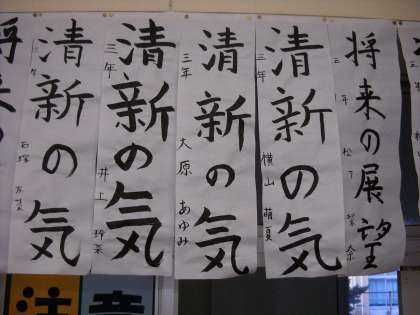 将来の展望
三年 松下
清新の気
三年 横山 萌夏
清新の気
三年 大原 あゆみ
清新の気
三年 井上
清新の気
三年 石塚
将来の
注意